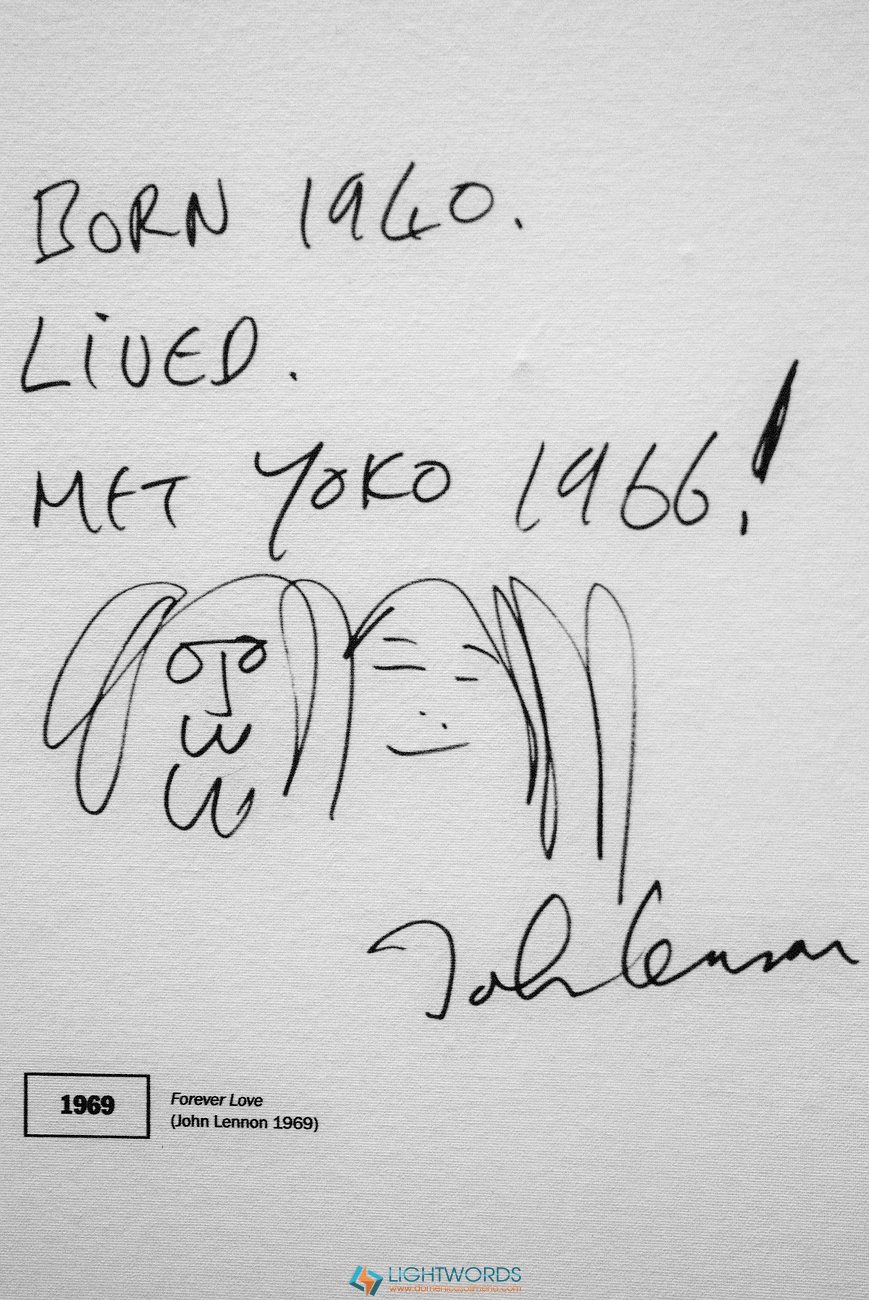 BORN 1940.
LIVED.
MET YOKO 1966!
John Lennon
1969
Forever Love
(John Lennon 1969)
LIGHTWORDS